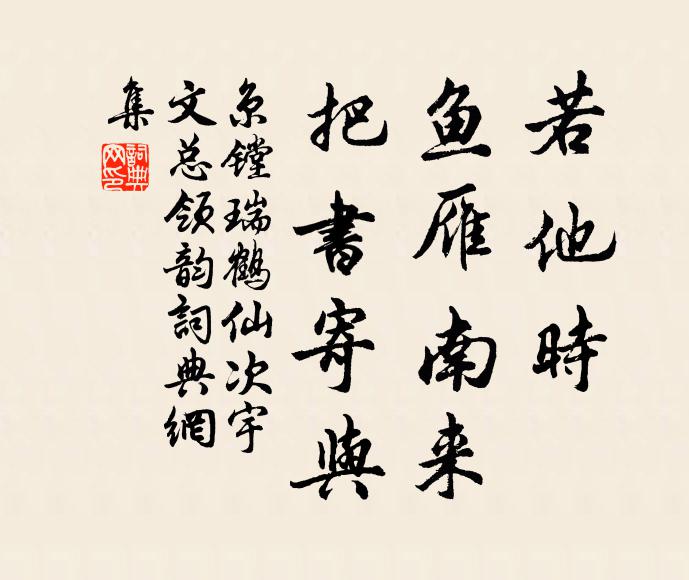 若他時
鱼雁南来
把書寄與
京镗瑞鹤仙次宇
文总领韵詞典網
集
詞典
网印